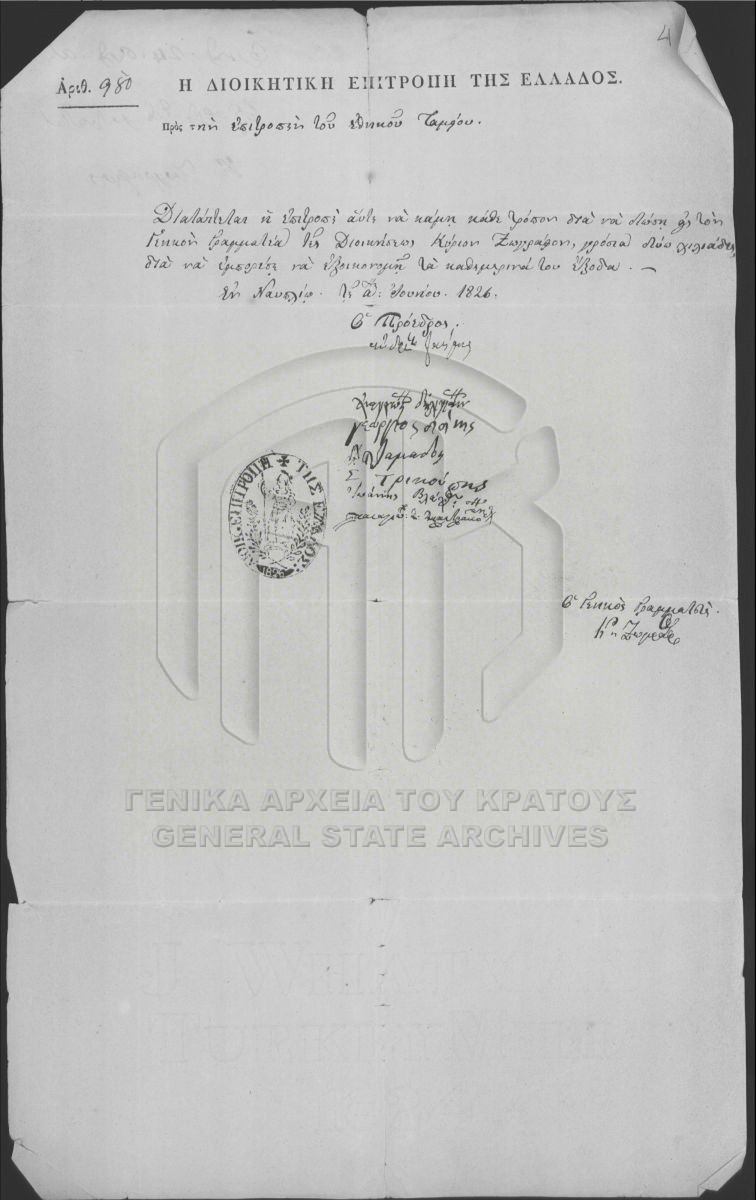 4
Ἀριθ. 980 Η ΔΙΟΙΚΗΤΙΚΗ ΕΠΙΤΡΟΠΗ ΤΗΣ ΕΛΛΑΔΟΣ.
Πρὸς τὴν ἐπιτροπὴν τοῦ ἐθνικοῦ Ταμείου.
Διατάττεται ἡ ἐπιτροπὲ αὕτε νὰ κάμῃ κάθε τρόπον διὰ νὰ δώσῃ εἰς τὸν
Γενικὸν Γραμματέα τῆς Διοικήσεως Κύριον Ζωγράφον, γρόσια δύω χιλιάδες,
διὰ νὰ ἐμπορέσῃ νὰ ἐξοικονομῇ τὰ καθεμερινά του ἔξοδα. —
Ἐν Ναυπλίῳ. τῇ α: Ἰουνίου. 1826.
Ὁ Πρόεδρος.
γεώργιος σισίνης
Σ Τρικούπης
Ἰωάννης Βλάχος
ΔΙΟΙΚ. ΕΠΙΤΡΟΠΗ ΤΗΣ ΕΛΛΑΔΟΣ
1826
Ὁ Γενικὸς Γραμματεὺς.
ΓΕΝΙΚΑ ΑΡΧΕΙΑ ΤΟΥ ΚΡΑΤΟΥΣ
GENERAL STATE ARCHIVES